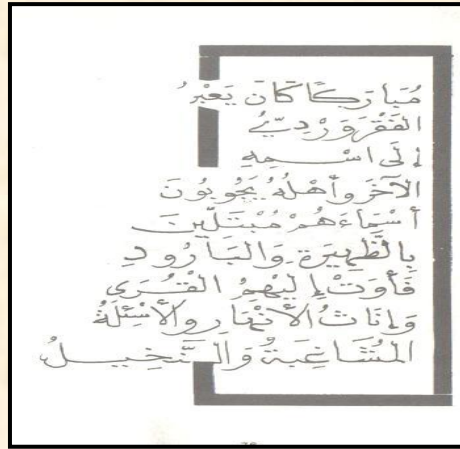 مُبَارَكًا كَانَ يَعْبُرُ
الفَقْرَ وَرْدِيُّ
إِلَى اسْمِهِ
الآخَرَ وَأَهْلُهُ يَجُوبُونَ
أَسْمَاءَهُمْ مُبْتَلِّينَ
بِالظَّهِيرَةِ وَالبَارُودِ
فَأَوَتْ إِلَيْهِمُ الْقُرَى
وَإِنَاثُ الأَنْهَارِ وَالأَسْئِلَةُ
المُشَاغِبَةُ وَالنَّخِيلُ